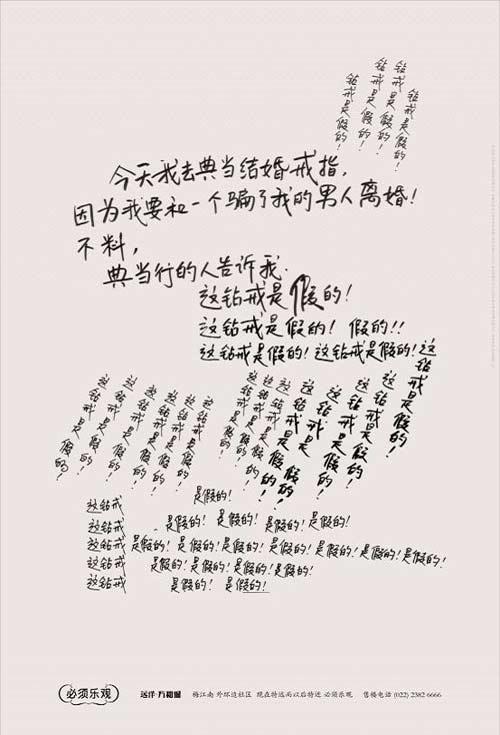 钻戒是假的！
钻戒是假的！
钻戒是假的！
钻戒是假的！
今天我去典当结婚戒指，
因为我要和一个骗了我的男人离婚！
不料，
典当行的人告诉我.
这钻戒是假的！
这钻戒是假的！ 假的！！
这钻戒是假的！这钻戒是假的！这
钻戒是假的！
这钻戒是假的！
这钻戒是假的！
这钻戒是假的！
这钻戒是假的！
这钻戒是假的！
这钻戒是假的！
这钻戒是假的！
这钻戒是假的！
这钻戒是假的！
这钻戒是假的！
这钻戒是假的！
这钻戒是假的！
这钻戒 是假的！
这钻戒 是假的！是假的！是假的！是假的！
这钻戒 是假的！是假的！是假的！是假的！是假的！是假的！是假的！
这钻戒 是假的！是假的！是假的！是假的！
这钻戒 是假的！ 是假的！
必须乐观
远洋·万和城 梅江南 外环边社区 现在特远而以后特近 必须乐观 售楼电话 (022) 2382 6666